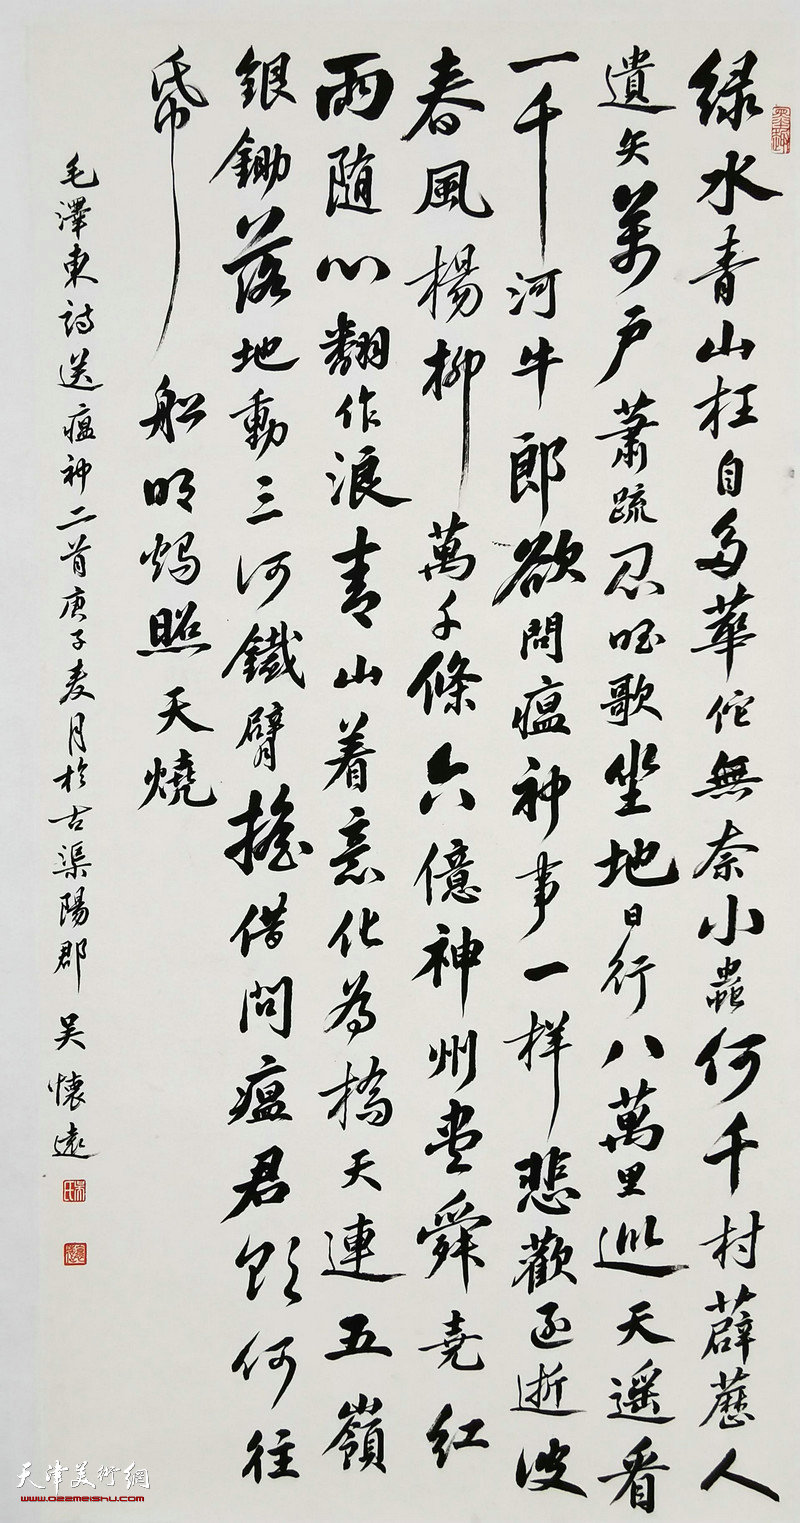 绿水青山枉自多華佗無奈小蟲何千村薜藶人
遺矢萬户蕭疏鬼唱歌坐地日行八萬里巡天遥看
一千河牛郎欲問瘟神事一样悲歡逐逝波
春風楊柳萬千條六億神州盡舜堯紅
雨随心翻作浪青山着意化為橋天連五嶺
銀鋤落地動三河鐵臂摇借問瘟君欲何往
帋船明燭照天燒
毛澤東詩送瘟神二首庚子麦月於古渠陽郡 吴懷遠
天津美術網
www.022meishu.com